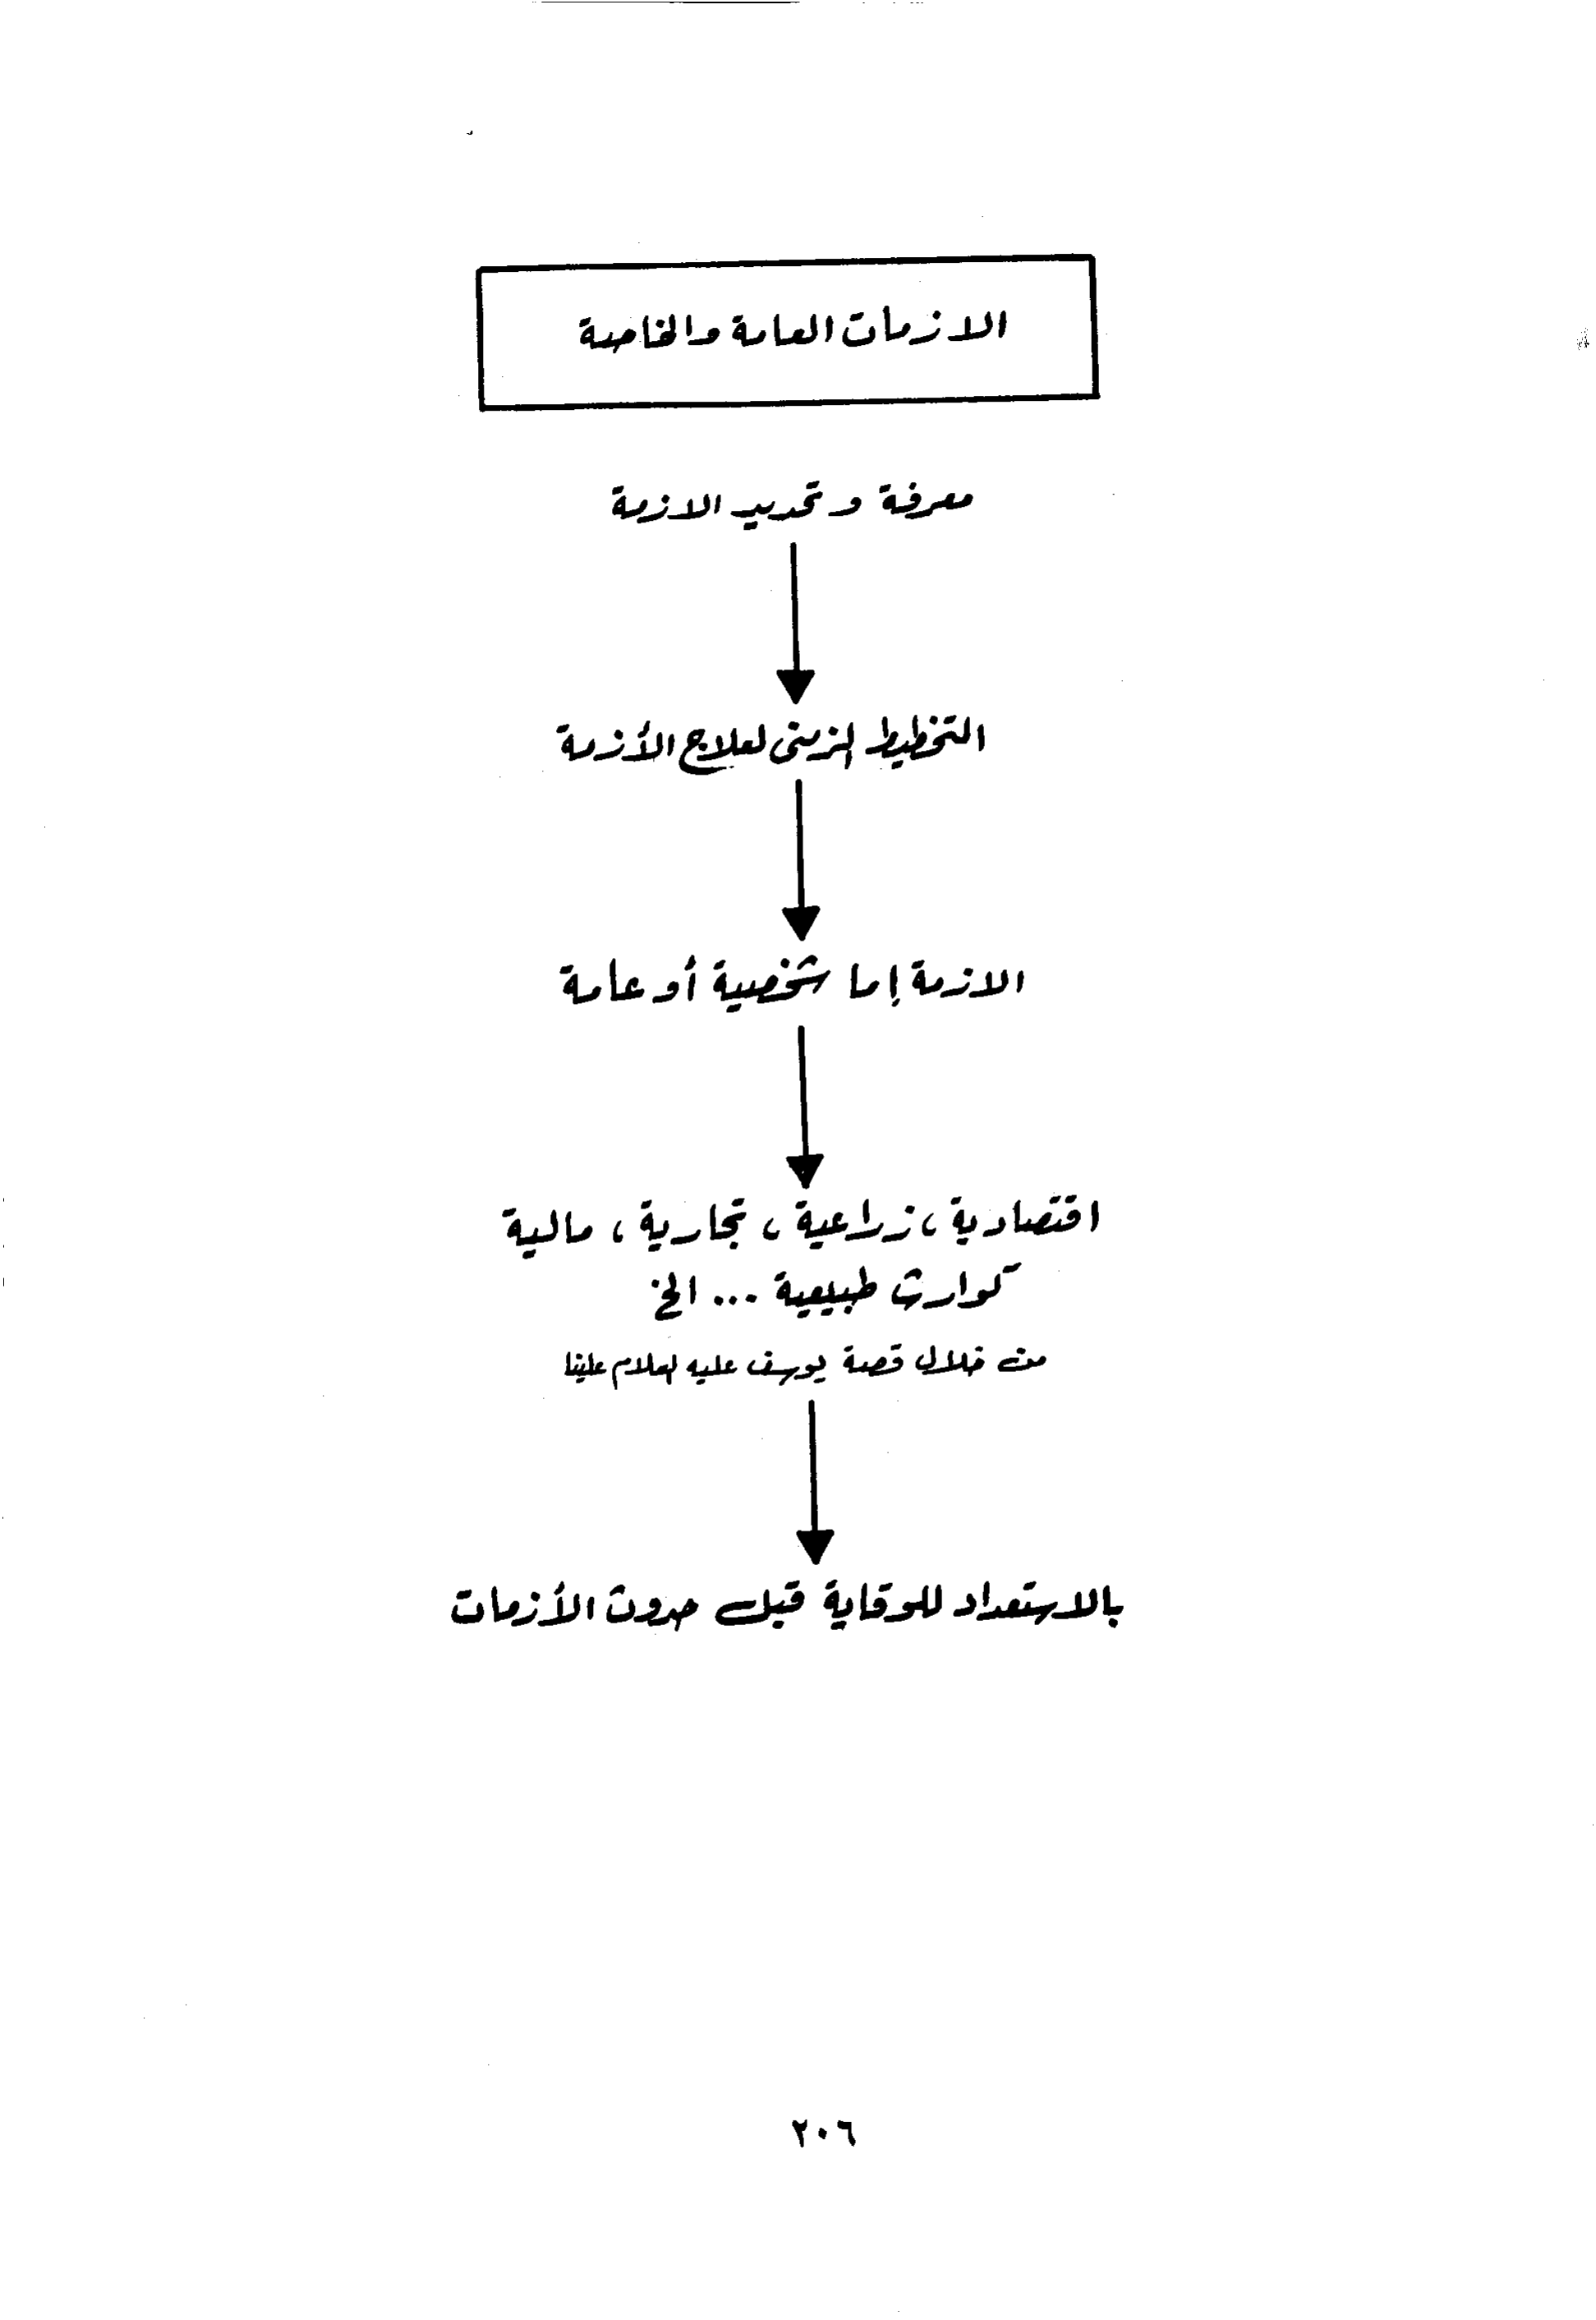 الازمات العامة والخاصة
معرفة و تحديد الازمة
التخطيط الزمنى لعلاج الأزمة
الازمة إما شخصية أو عامة
اقتصادية، زراعية، تجارية، مالية
كوارث طبيعية ... الخ
من خلال قصة يوسف عليه السلام علينا
بالاستعداد للوقاية قبل حدوث الأزمات
٢٠٦